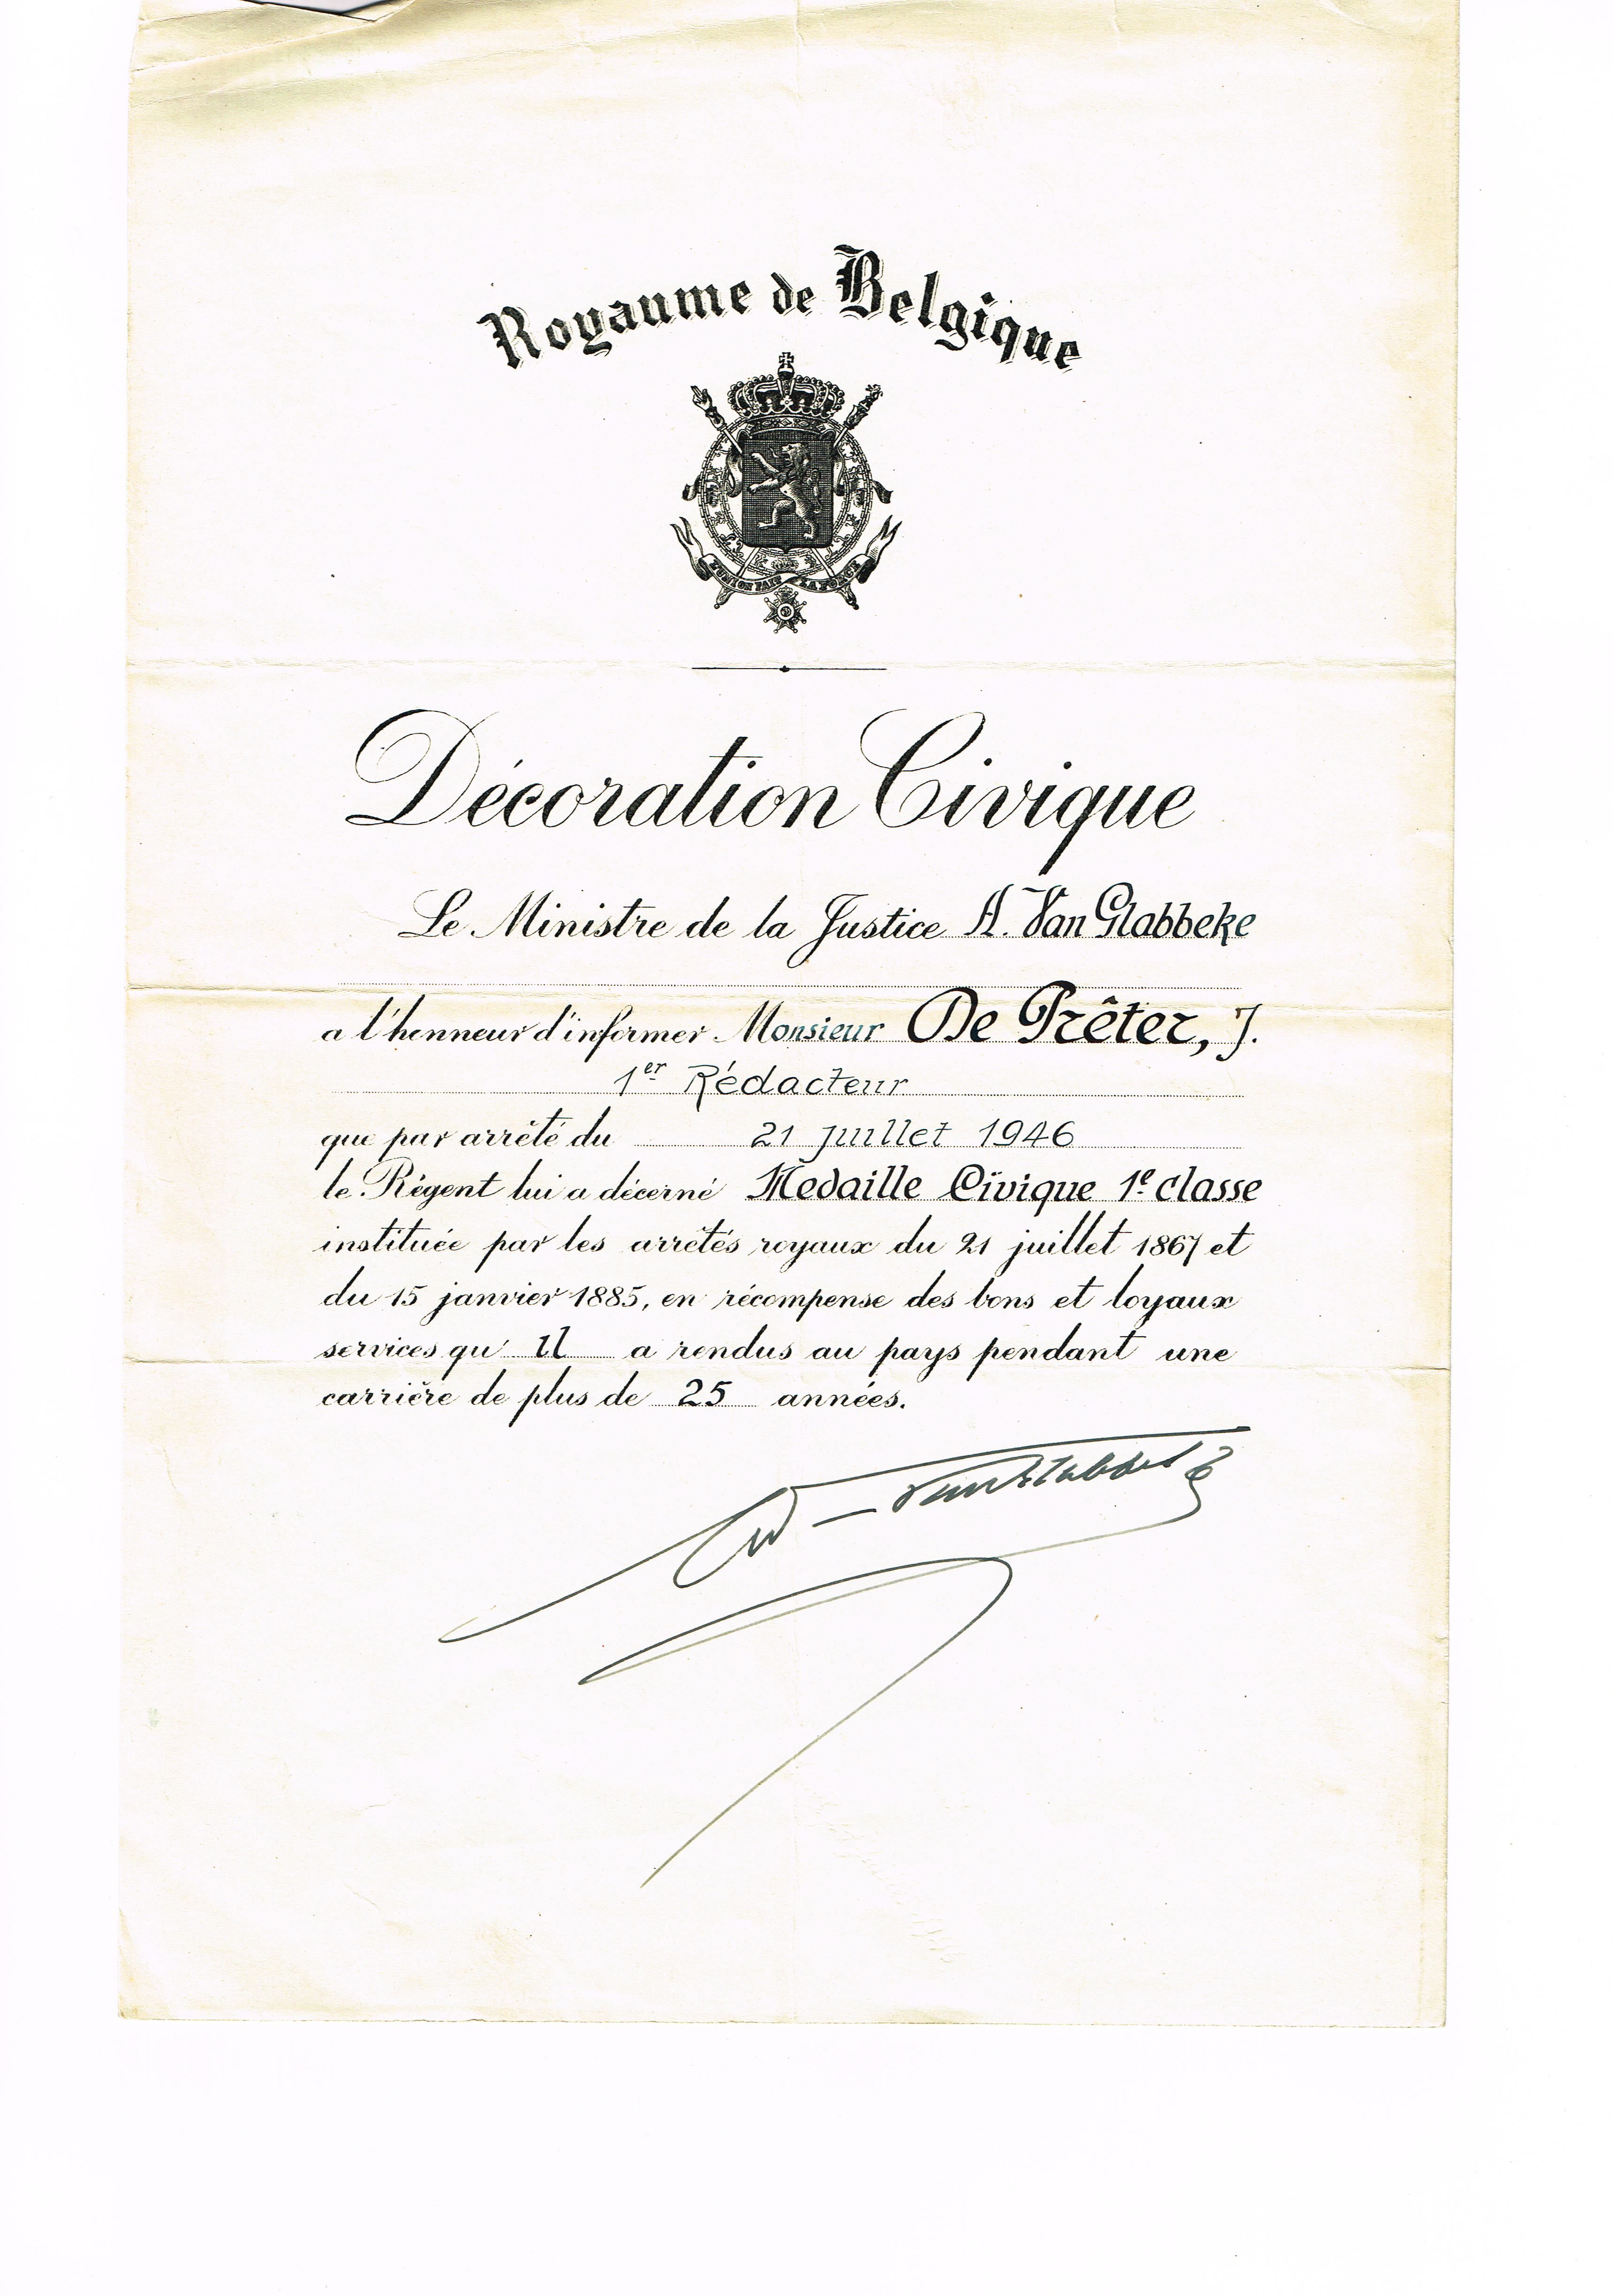 Royaume de Belgique
L'UNION FAIT LA FORCE
Décoration Civique
Le Ministre de la Justice A. Van Glabbeke
a l'honneur d'informer Monsieur De Prêter, J.
1er Rédacteur
que par arrêté du 21 juillet 1946
le Régent lui a décerné Medaille Civique 1e classe
instituée par les arrêtés royaux du 21 juillet 1867 et
du 15 janvier 1885, en récompense des bons et loyaux
services qu'il a rendus au pays pendant une
carrière de plus de 25 années.